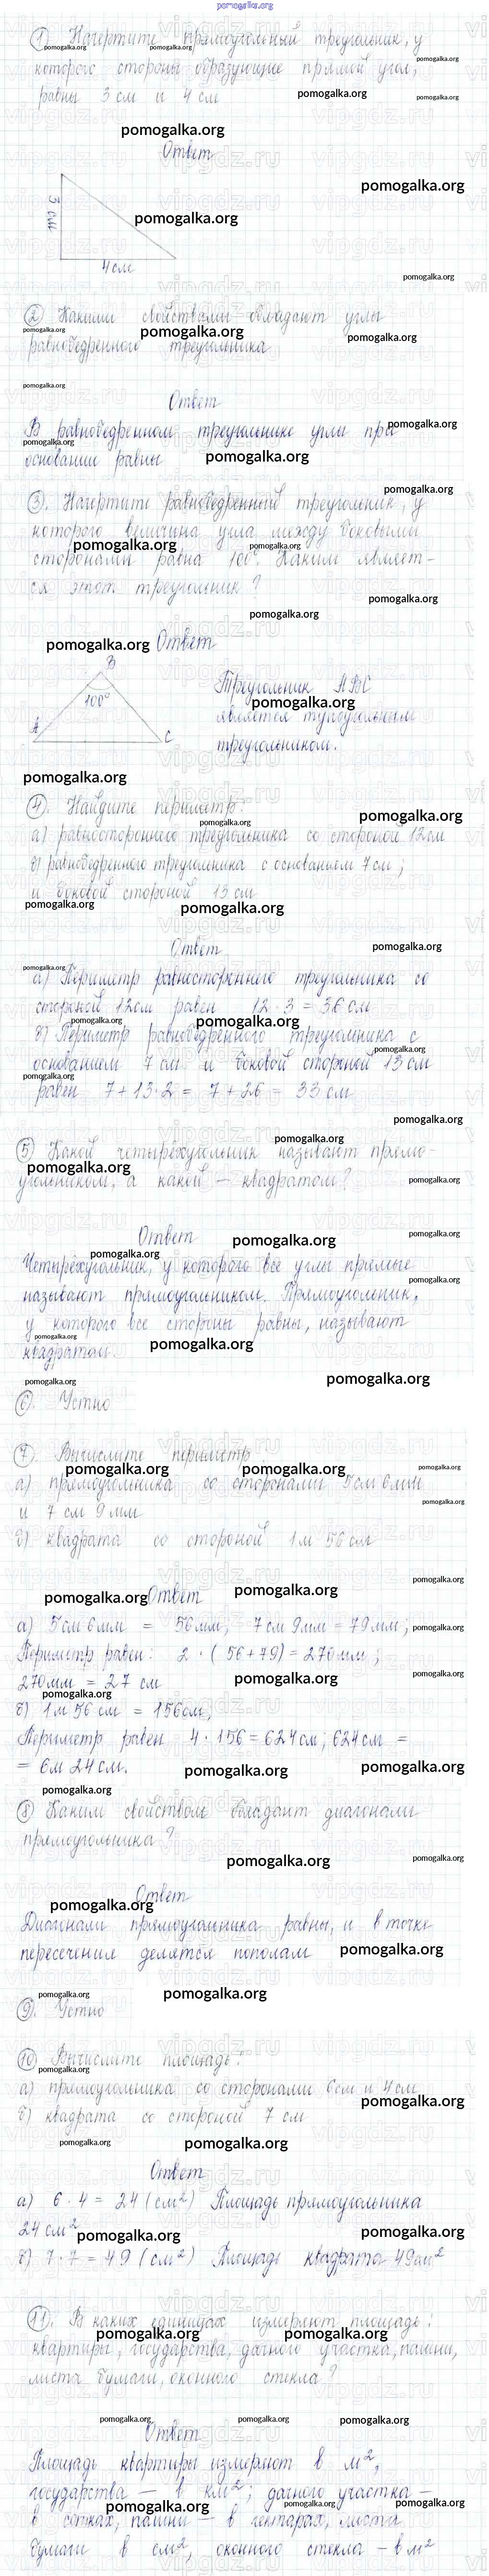 pomogalka.org
① Начертите прямоугольный треугольник, у
которого стороны образующие прямой угол,
равны 3 см и 4 см
Ответ
3 см
4 см
② Какими свойствами обладают углы
равнобедренного треугольника
Ответ
В равнобедренном треугольнике углы при
основании равны
③. Начертите равнобедренный треугольник, у
которого величина угла между боковыми
сторонами равна 100° Каким являет-
ся этот треугольник?
Ответ
B
100°
A
C
Треугольник ABC
является тупоугольным
треугольником.
④. Найдите периметр:
а) равностороннего треугольника со стороной 12 см
б) равнобедренного треугольника с основанием 7 см;
и боковой стороной 13 см
Ответ
а) Периметр равностороннего треугольника со
стороной 12 см равен 12 · 3 = 36 см
б) Периметр равнобедренного треугольника с
основанием 7 см и боковой стороной 13 см
равен 7 + 13·2 = 7 + 26 = 33 см
⑤ Какой четырёхугольник называют прямо-
угольником, а какой – квадратом?
Ответ
Четырёхугольник, у которого все углы прямые
называют прямоугольником. Прямоугольник,
у которого все стороны равны, называют
квадратом.
⑥. Устно
⑦. Вычислите периметр
а) прямоугольника со сторонами 5 см 6 мм
и 7 см 9 мм
б) квадрата со стороной 1 м 56 см
Ответ
а) 5 см 6 мм = 56 мм; 7 см 9 мм = 79 мм;
Периметр равен: 2 · (56 + 79) = 270 мм;
270 мм = 27 см
б) 1 м 56 см = 156 см;
Периметр равен 4 · 156 = 624 см; 624 см =
= 6 м 24 см.
⑧ Каким свойством обладают диагонали
прямоугольника?
Ответ
Диагонали прямоугольника равны, и в точке
пересечения делятся пополам
⑨. Устно
⑩ Вычислите площадь:
а) прямоугольника со сторонами 6 см и 4 см
б) квадрата со стороной 7 см
Ответ
а) 6 · 4 = 24 (см²) Площадь прямоугольника
24 см²
б) 7 · 7 = 49 (см²) Площадь квадрата 49 см²
⑪. В каких единицах измеряют площадь:
квартиры, государства, дачного участка, пашни,
листа бумаги, оконного стекла?
Ответ
Площадь квартиры измеряют в м²,
государства – в км²; дачного участка –
в сотках, пашни – в гектарах, листа
бумаги в см², оконного стекла – в м²